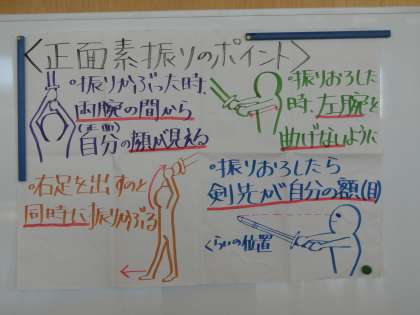 <正面素振りのポイント>
○振りかぶった時、
両腕の間から
(正面)
自分の顔が見える
○振りおろした
時、左腕を
曲げないように
○右足を出すのと
同時に振りかぶる
○振りおろしたら
剣先が自分の額(目)
くらいの位置